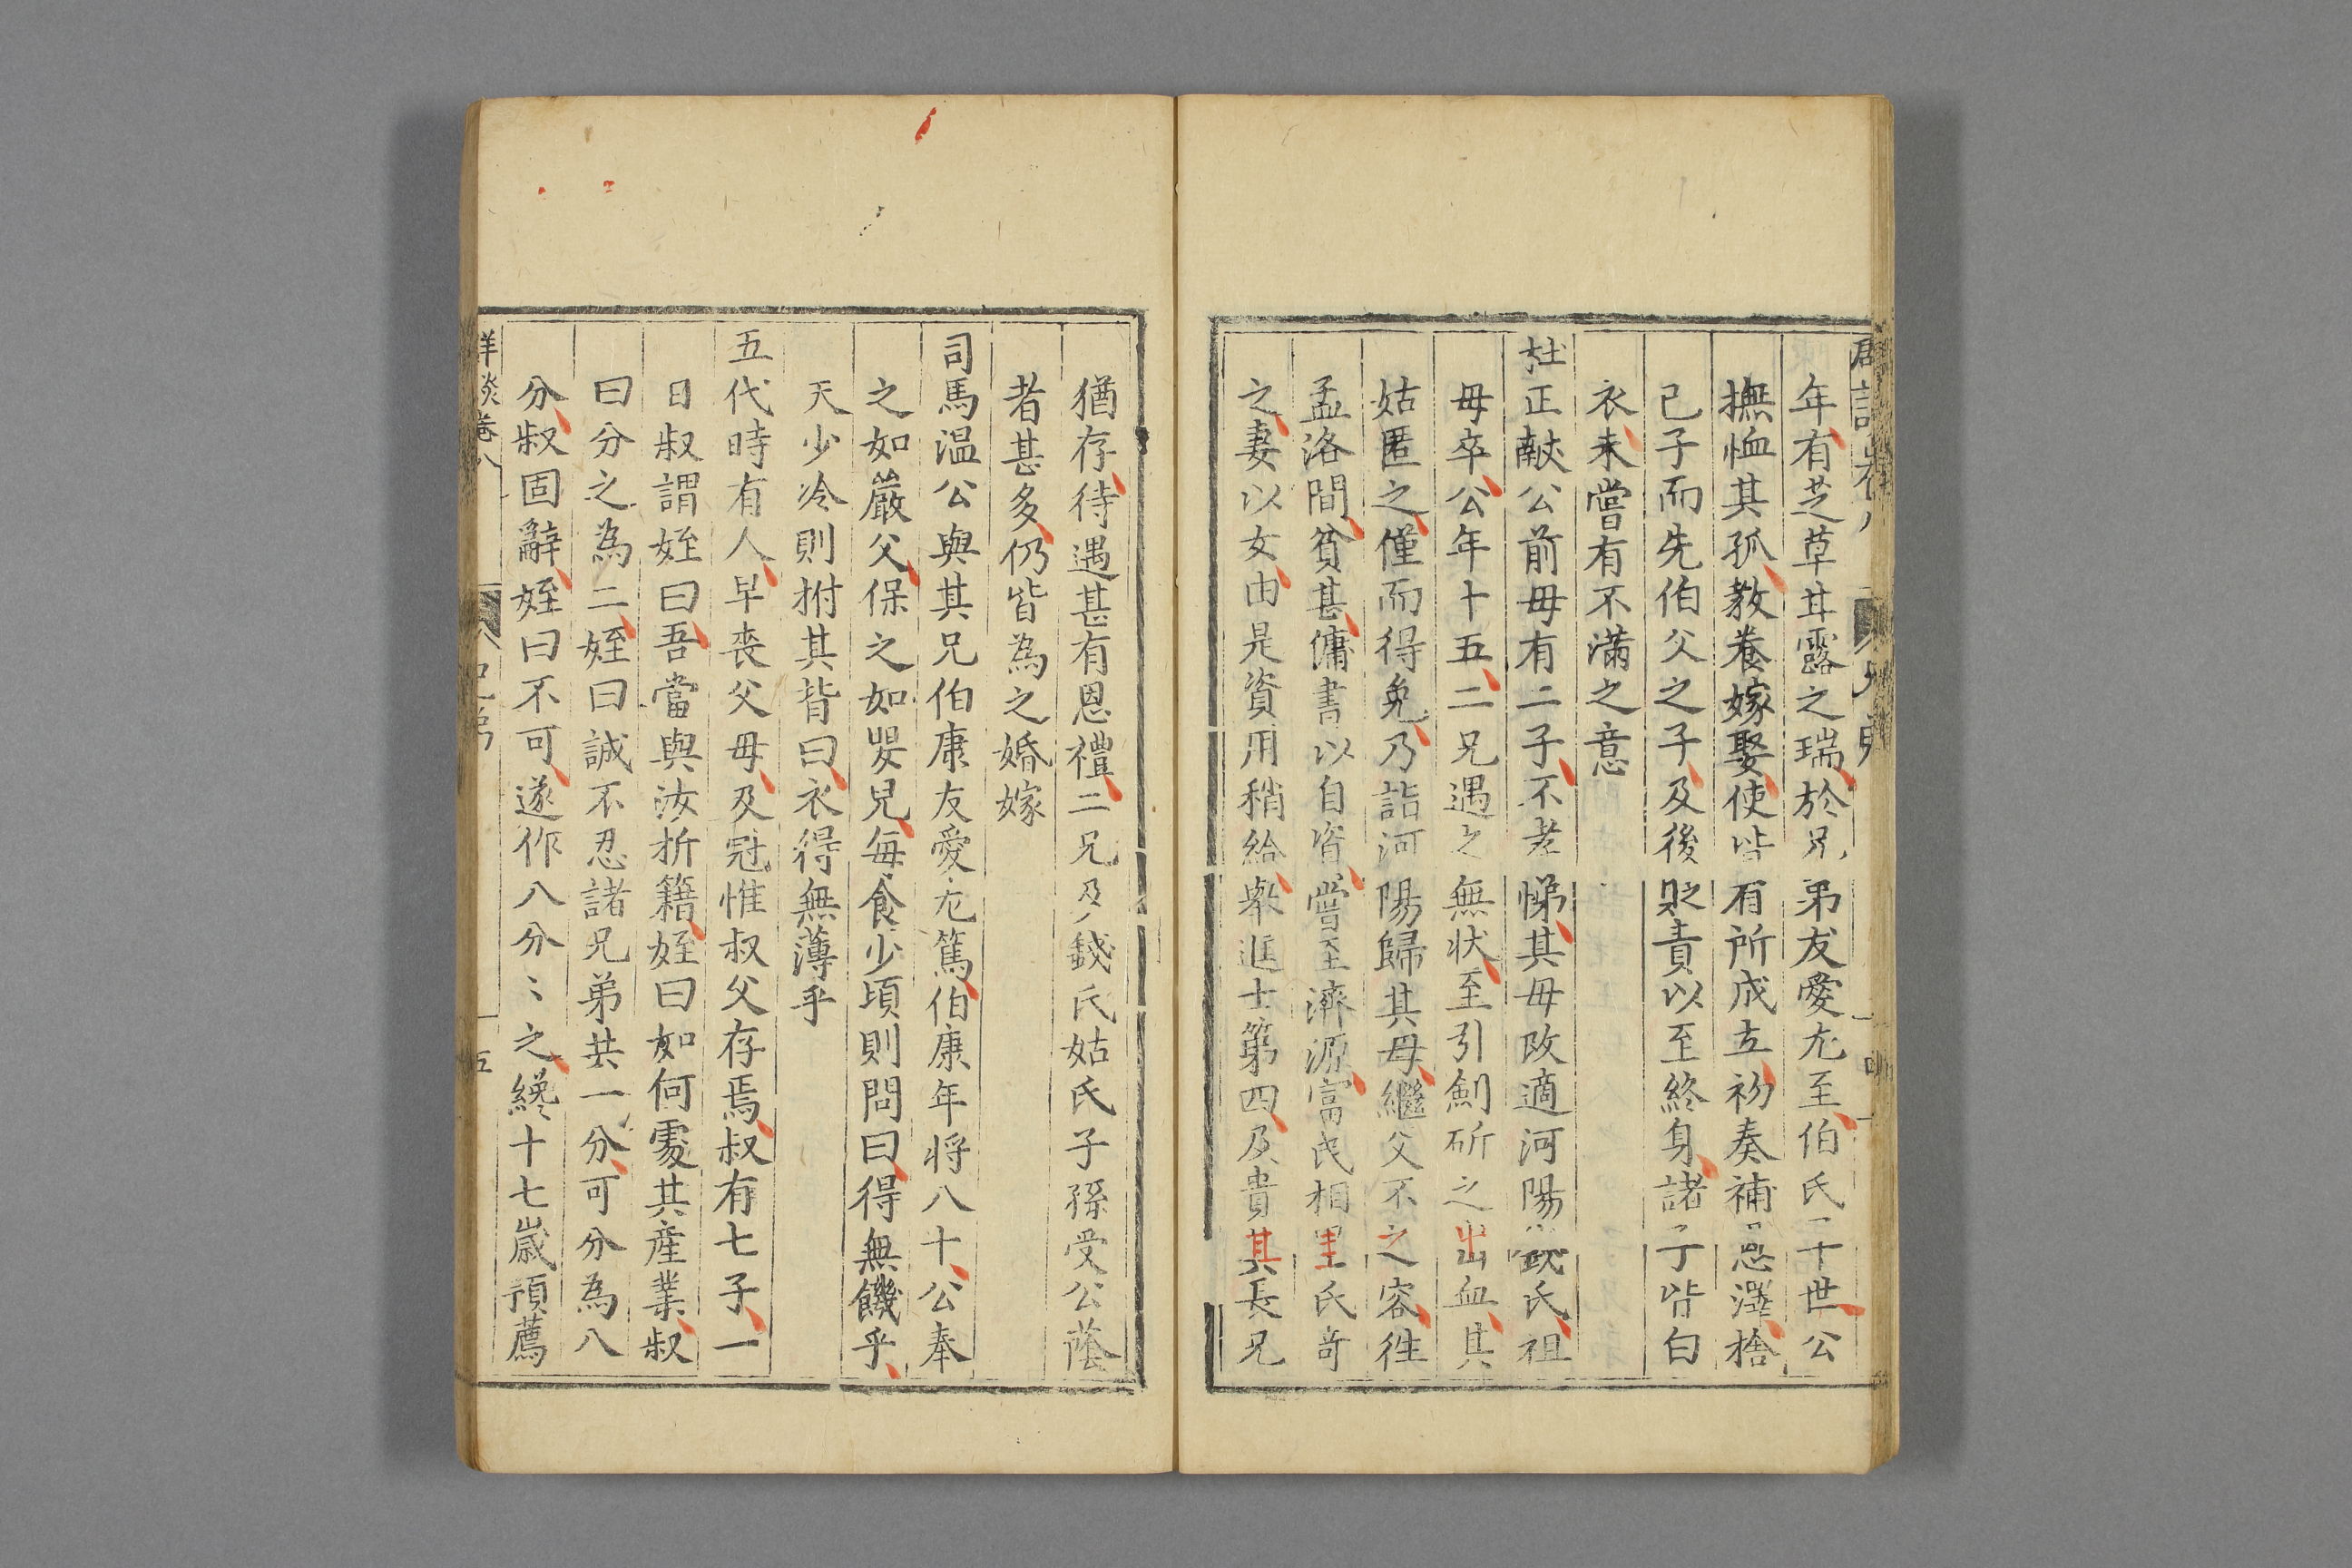 年有芝草甘露之瑞於兄弟友愛尤至伯氏二十世公
撫恤其孤教養嫁娶使皆有所成立初奏補恩澤捨
已子而先伯父之子及後貶責以至終身諸子皆白
衣未嘗有不滿之意
杜正献公前母有二子不孝悌其母改適河陽錢氏祖
母卒公年十五二兄遇之無状至引劍斫之出血其
姑匿之僅而得免乃詣河陽歸其母繼父不之容徃
孟洛間貧甚傭書以自資嘗至濟源富民相里氏奇
之妻以女由是資用稍給舉進士第四及貴其長兄
猶存待遇甚有恩禮二兄及錢氏姑氏子孫受公蔭
者甚多仍皆為之婚嫁
司馬温公與其兄伯康友愛尤篤伯康年将八十公奉
之如嚴父保之如嬰兒每食少頃則問曰得無饑乎
天少冷則拊其背曰衣得無薄乎
五代時有人早喪父母及冠惟叔父存焉叔有七子一
日叔謂姪曰吾當與汝折籍姪曰如何處其産業叔
曰分之為二姪曰誠不忍諸兄弟共一分可分為八
分叔固辭姪曰不可遂作八分〻之纔十七歳預薦
談巻八
五